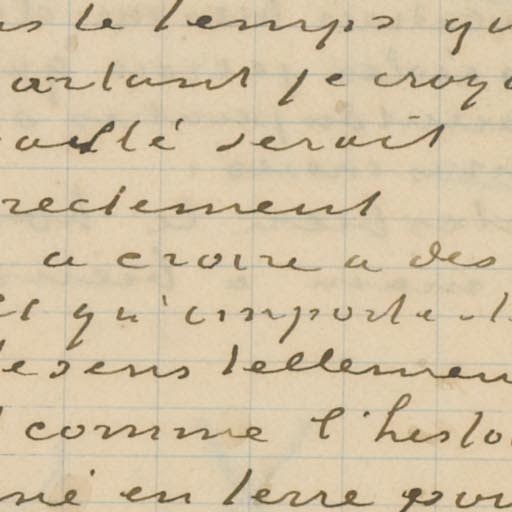 le temps qu
artant je croya
serait
reciement
a croire a des
qu'importe
sens tellemen
comme l'histo
né en terre pour